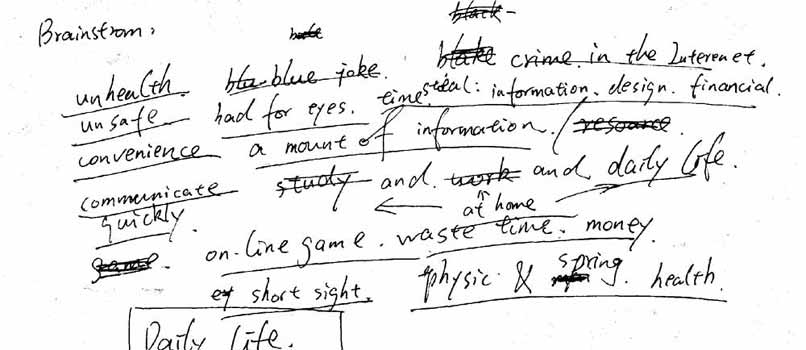 Brainstrom:
unhealth. blue joke. crime in the Interenet.
unsafe had for eyes. time steal: information. design. financial.
convenience a mount of information. /
communicate and and daily life.
quickly ← at home
on-line game. waste time. money.
short sight. physic & spring. health.
Daily Life.